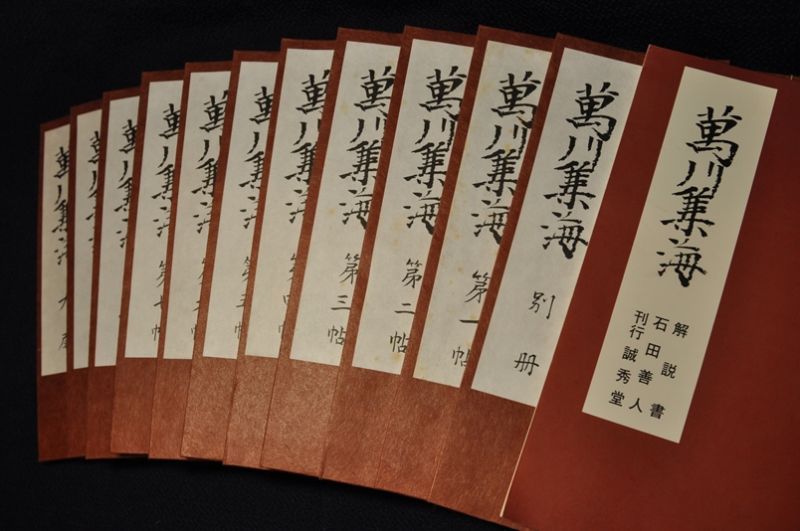 萬川集海
解説書
石田善人
刊行誠秀堂
萬川集海
別冊
萬川集海
第一帖
萬川集海
第二帖
萬川集海
第三帖
萬川集海
第四帖
萬川集海
第五
萬川集海
第
萬川集海
第七帖
萬川集海
萬川集海
萬川集海